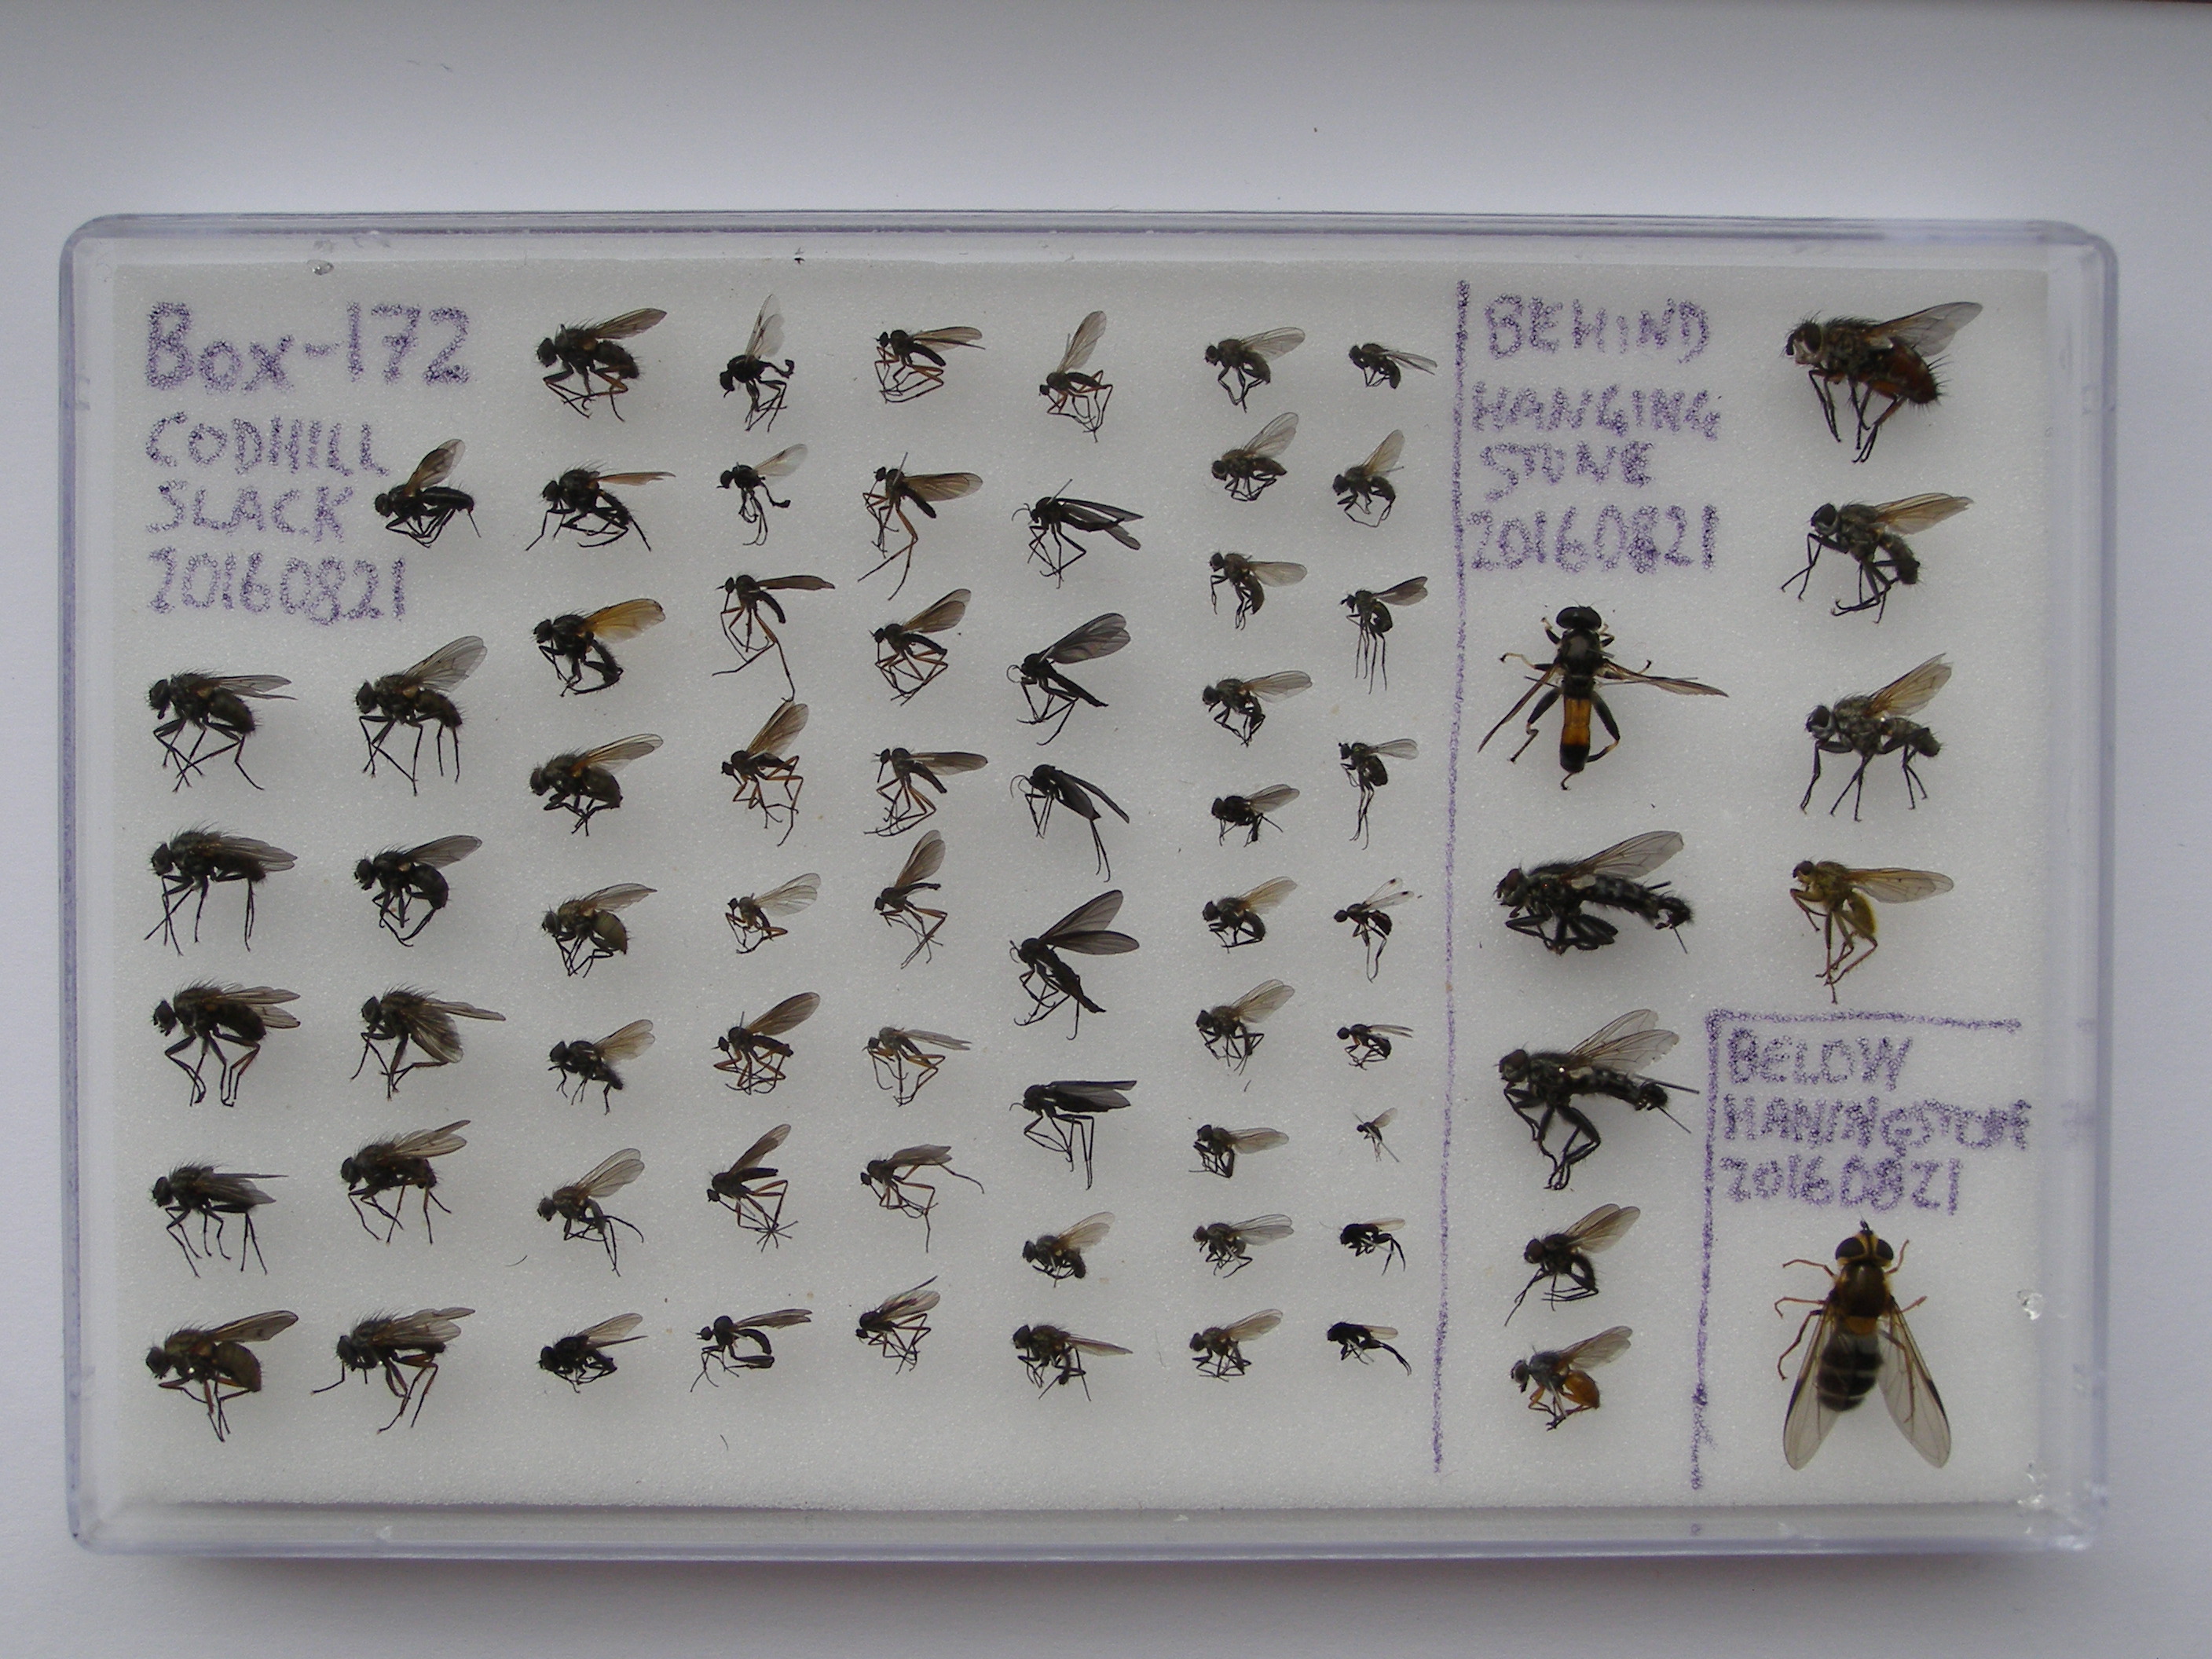 Box-172
CODHILL
SLACK
20160821
BEHIND
HANGING
STONE
20160821
BELOW
20160821